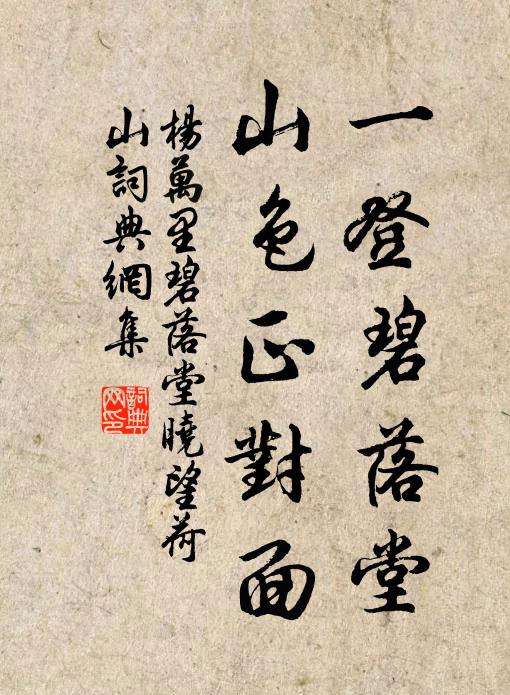 一登碧落堂
山色正對面
楊萬里碧落堂曉望荷
山詞典網集
詞典
网印